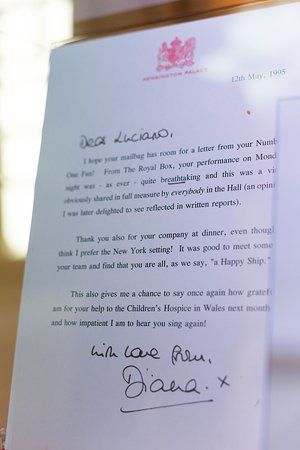 KENSINGTON PALACE
12th May, 1995
Dear Luciano,
I hope your mailbag has room for a letter from your Numb
One Fan! From The Royal Box, your performance on Mond
night was - as ever - quite breathtaking and this was a vi
obviously shared in full measure by everybody in the Hall (an opini
I was later delighted to see reflected in written reports).
Thank you also for your company at dinner, even thoug
think I prefer the New York setting! It was good to meet some
your team and find that you are all, as we say, "a Happy Ship."
This also gives me a chance to say once again how gratef
am for your help to the Children's Hospice in Wales next month
and how impatient I am to hear you sing again!
with love from,
Diana. x